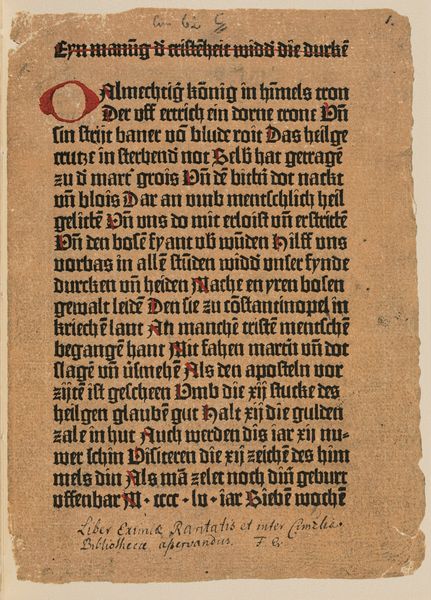 Eyn manũg d' cristẽheit widd' die durkẽ
O Almechtig' kõnig in hĩmels tron
Der vff ertrich ein dorne crone Vñ
sin strijt baner võ blude roit Das heilge
crutze in sterbend' not Selb' hat getragẽ
zu d' mart' grois Vñ dẽ bitt'n dot nackt
vñ blois Dar an vmb mentschlich heil
gelittẽ Vñ vns do mit erloist vñ erstrittẽ
Vñ den bosẽ fyant vb' wũden Hilff vns
vorbas in allẽ stũden widd' vnser fynde
durcken vñ heiden Mache en yren bosen
gewalt leidẽ Den sie zu cõstantinopel in
kriechẽ lant An manchẽ cristẽ mentschẽ
begangẽ hant Mit fahen martn̄ vñ dot
slagẽ vñ v'smehẽ Als den aposteln vor
zijtẽ ist gescheen Vmb die xij stucke des
heilgen glaubẽ gut Halt xij die gulden
zale in hut Auch werden dis iar xij nu-
wer schin Visiteren die xij zeichẽ des him
mels din Als mã zelet noch din' geburt
vffenbar M · cccc · lv · iar Siebẽ wochẽ
Liber Eximiæ Raritatis et inter Cimelia
Bibliothecæ asservandus. F. G.